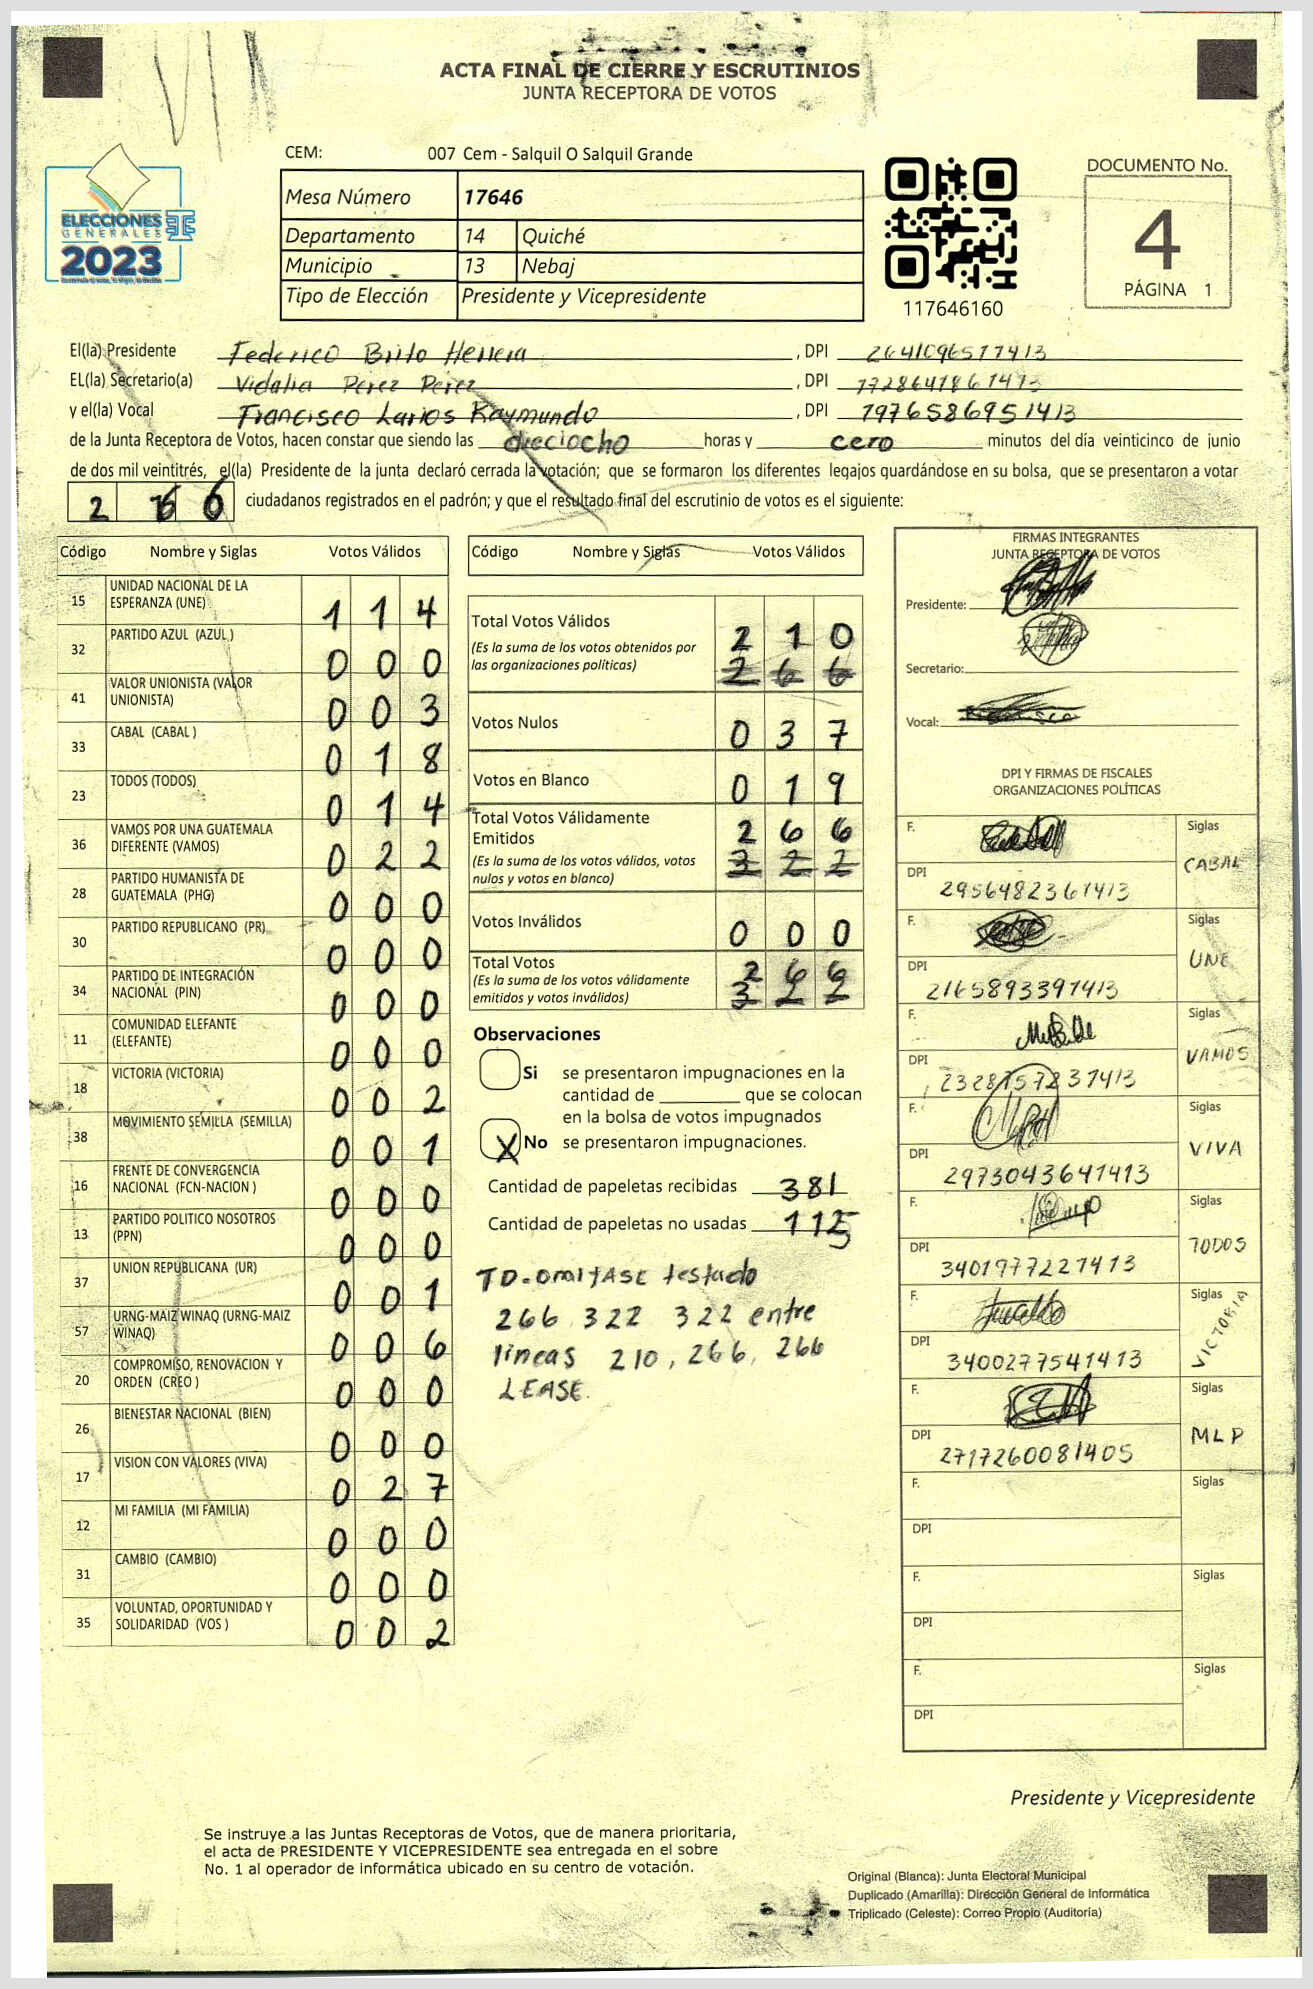 ACTA FINAL DE CIERRE Y ESCRUTINIOS
JUNTA RECEPTORA DE VOTOS
CEM: 007 Cem - Salquil O Salquil Grande
ELECCIONES
GENERALES
2023
Mesa Número 17646
Departamento 14 Quiché
Municipio 13 Nebaj
Tipo de Elección Presidente y Vicepresidente
117646160
DOCUMENTO No.
4
PÁGINA 1
El(la) Presidente Federico Brito Herrera, DPI 2641096577413
EL(la) Secretario(a) Vidalia Perez Perez, DPI 1728641861413
y el(la) Vocal Francisco Larios Raymundo, DPI 7976586951413
de la Junta Receptora de Votos, hacen constar que siendo las dieciocho horas y cero minutos del día veinticinco de junio
de dos mil veintitrés, el(la) Presidente de la junta declaró cerrada la votación; que se formaron los diferentes legajos quardándose en su bolsa, que se presentaron a votar
2 6 6 ciudadanos registrados en el padrón; y que el resultado final del escrutinio de votos es el siguiente:
Código Nombre y Siglas Votos Válidos
15 UNIDAD NACIONAL DE LA ESPERANZA (UNE) 1 1 4
32 PARTIDO AZUL (AZUL) 0 0 0
41 VALOR UNIONISTA (VALOR UNIONISTA) 0 0 3
33 CABAL (CABAL ) 0 1 8
23 TODOS (TODOS) 0 1 4
36 VAMOS POR UNA GUATEMALA DIFERENTE (VAMOS) 0 2 2
28 PARTIDO HUMANISTA DE GUATEMALA (PHG) 0 0 0
30 PARTIDO REPUBLICANO (PR) 0 0 0
34 PARTIDO DE INTEGRACIÓN NACIONAL (PIN) 0 0 0
11 COMUNIDAD ELEFANTE (ELEFANTE) 0 0 0
18 VICTORIA (VICTORIA) 0 0 2
38 MOVIMIENTO SEMILLA (SEMILLA) 0 0 1
16 FRENTE DE CONVERGENCIA NACIONAL (FCN-NACION ) 0 0 0
13 PARTIDO POLITICO NOSOTROS (PPN) 0 0 0
37 UNION REPUBLICANA (UR) 0 0 1
57 URNG-MAIZ WINAQ (URNG-MAIZ WINAQ) 0 0 6
20 COMPROMISO, RENOVACION Y ORDEN (CREO ) 0 0 0
26 BIENESTAR NACIONAL (BIEN) 0 0 0
17 VISION CON VALORES (VIVA) 0 2 7
12 MI FAMILIA (MI FAMILIA) 0 0 0
31 CAMBIO (CAMBIO) 0 0 0
35 VOLUNTAD, OPORTUNIDAD Y SOLIDARIDAD (VOS ) 0 0 2
Código Nombre y Siglas Votos Válidos
Total Votos Válidos 2 1 0
(Es la suma de los votos obtenidos por
las organizaciones políticas) 2 6 6
Votos Nulos 0 3 7
Votos en Blanco 0 1 9
Total Votos Válidamente
Emitidos 2 6 6
(Es la suma de los votos válidos, votos
nulos y votos en blanco) 3 2 2
Votos Inválidos 0 0 0
Total Votos 2 6 6
(Es la suma de los votos válidamente
emitidos y votos inválidos) 3 2 2
Observaciones
Si se presentaron impugnaciones en la
cantidad de ________ que se colocan
en la bolsa de votos impugnados
X No se presentaron impugnaciones.
Cantidad de papeletas recibidas 381
Cantidad de papeletas no usadas 115
TD-omitASE testado
266 322 322 entre
lineas 210, 266, 266
LEASE.
FIRMAS INTEGRANTES
JUNTA RECEPTORA DE VOTOS
Presidente:
Secretario:
Vocal:
DPI Y FIRMAS DE FISCALES
ORGANIZACIONES POLÍTICAS
F. Siglas CABAL
DPI 2956482361413
F. Siglas UNE
DPI 2165893391413
F. Siglas VAMOS
DPI 2328757237413
F. Siglas VIVA
DPI 2973043641413
F. Siglas TODOS
DPI 3401977227413
F. Siglas VICTORIA
DPI 3400277541413
F. Siglas MLP
DPI 2717260081405
F. Siglas
DPI
F. Siglas
DPI
F. Siglas
DPI
Presidente y Vicepresidente
Se instruye a las Juntas Receptoras de Votos, que de manera prioritaria,
el acta de PRESIDENTE Y VICEPRESIDENTE sea entregada en el sobre
No. 1 al operador de informática ubicado en su centro de votación.
Original (Blanca): Junta Electoral Municipal
Duplicado (Amarilla): Dirección General de Informática
Triplicado (Celeste): Correo Propio (Auditoría)